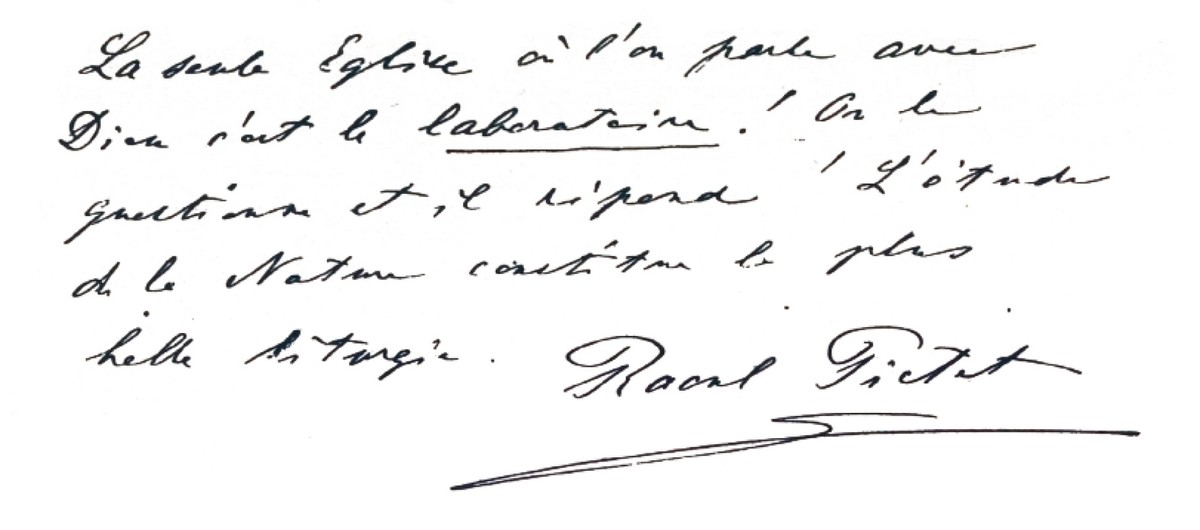 La seule Eglise où l'on parle avec
Dieu c'est le laboratoire ! On le
questionne et il répond ! L'étude
de la Nature constitue la plus
belle liturgie.
Raoul Pictet